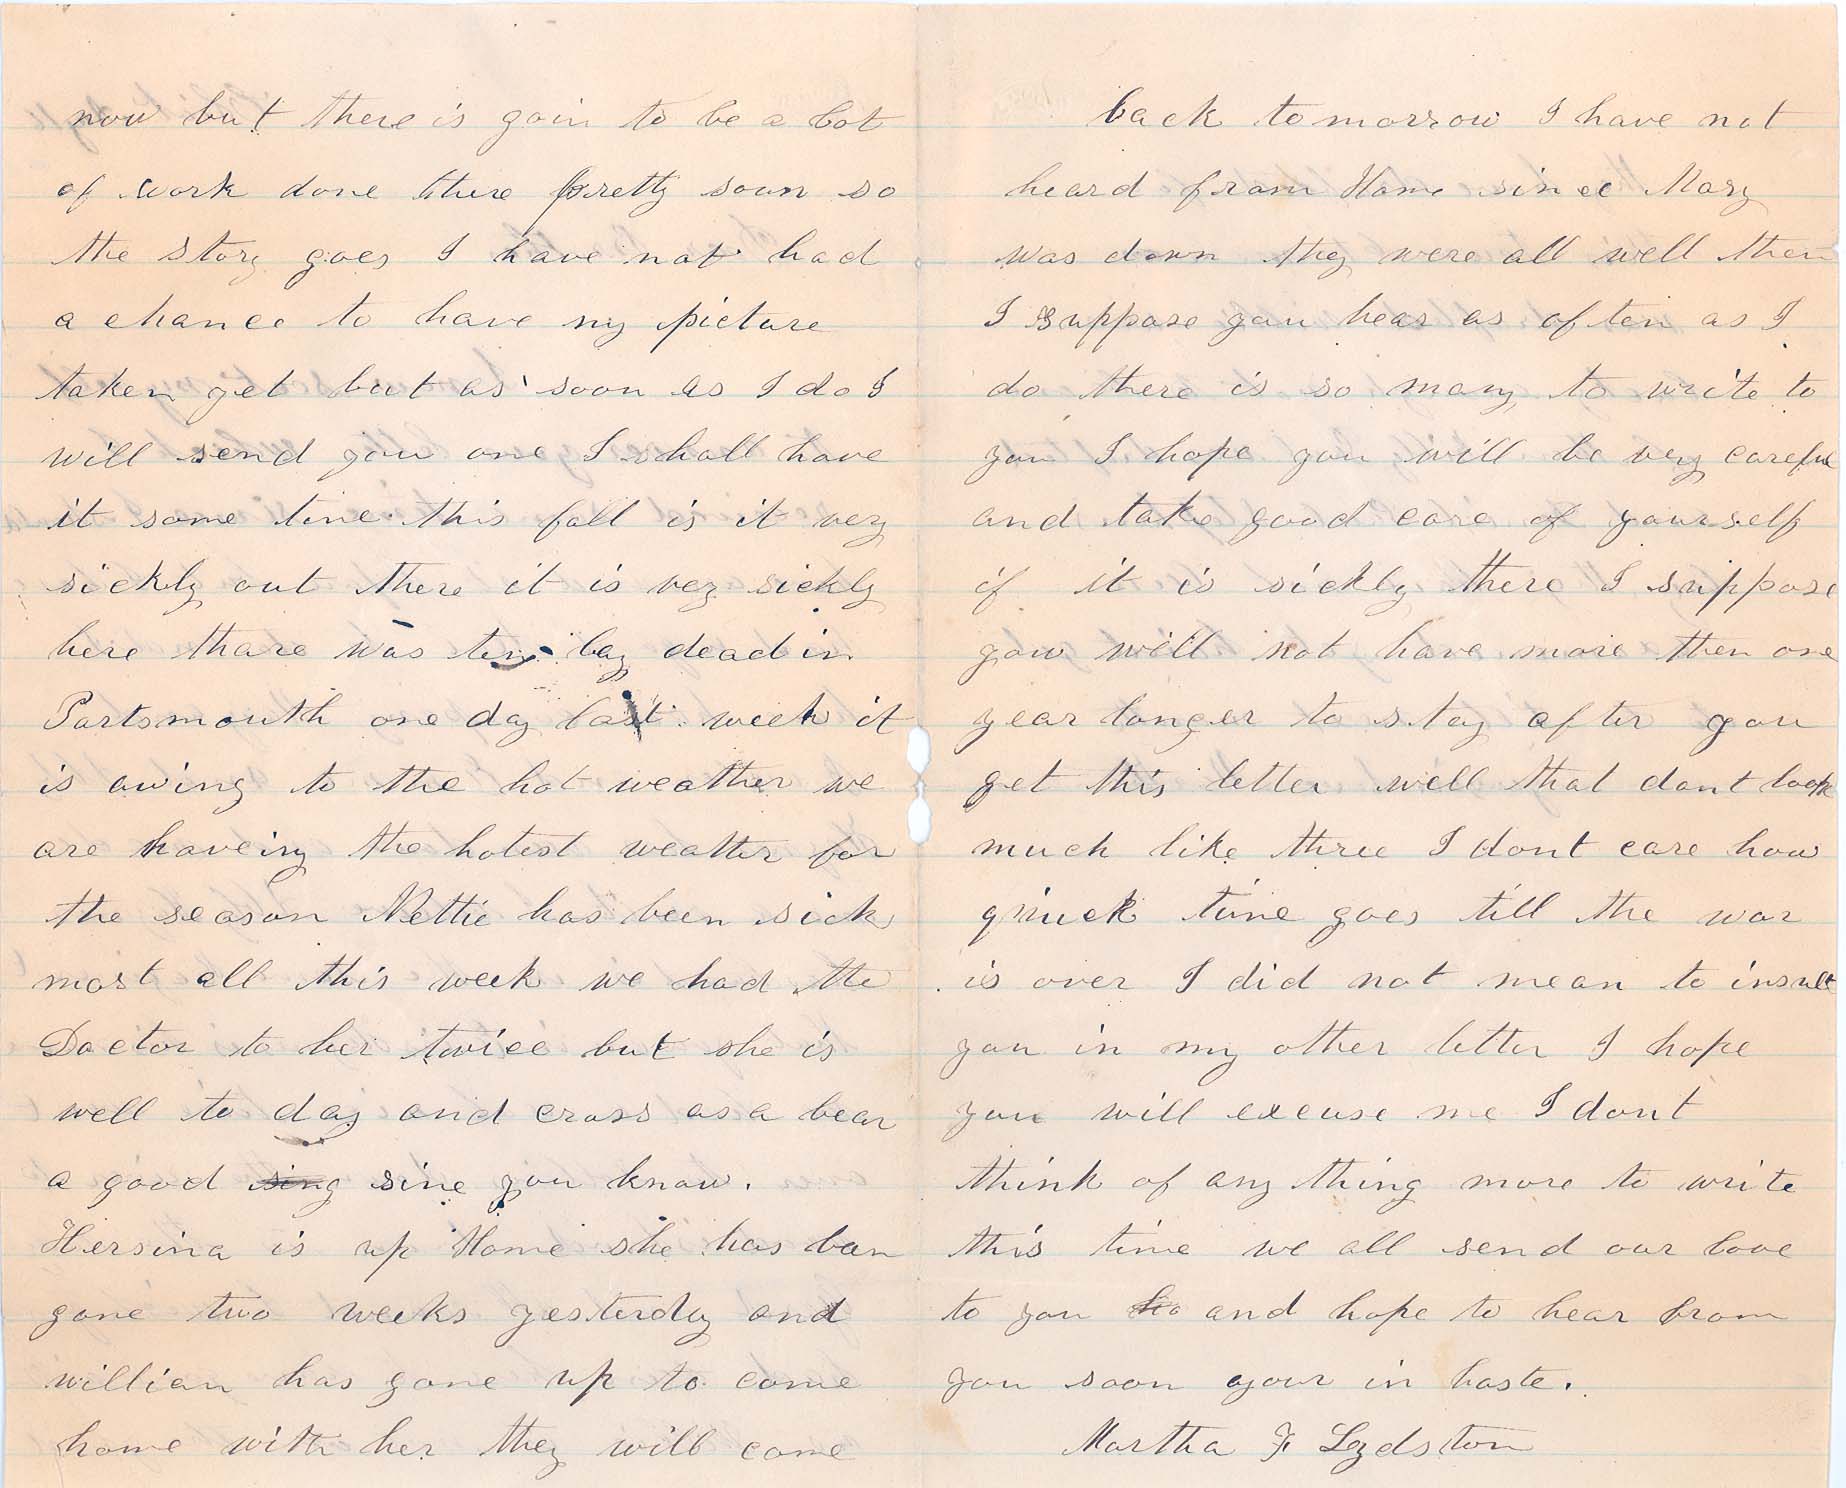 now but there is goin to be a lot
of work done there pretty soun so
the story goes I have not had
a chance to have my picture
taken yet but as soon as I do I
will send you one I shall have
it some time this fall is it very
sickly out there it is very sickly
here thare was ten lay dead in
Portsmouth one day last week it
is owing to the hot weather we
are haveing the hotest weather for
the season Nettie has been sick
most all this week we had the
Doctor to her twice but she is
well to day and cross as a bear
a good sing sine you know.
Hersina is up Home she has ben
gone two weeks yesterday and
willian has gone up to come
home with her they will come
back tomorrow I have not
heard from Home since Mary
was down they were all well then
I suppose you hear as often as I
do there is so many to write to
you I hope you will be very careful
and take good care of yourself
if it is sickly there I suppose
you will not have more then one
year longer to stay after you
get this letter well that dont look
much like three I dont care how
quick time goes till the war
is over I did not mean to insult
you in my other letter I hope
you will excuse me I dont
think of any thing more to write
this time we all send our love
to you and hope to hear from
you soon your in haste.
Martha F Lydston